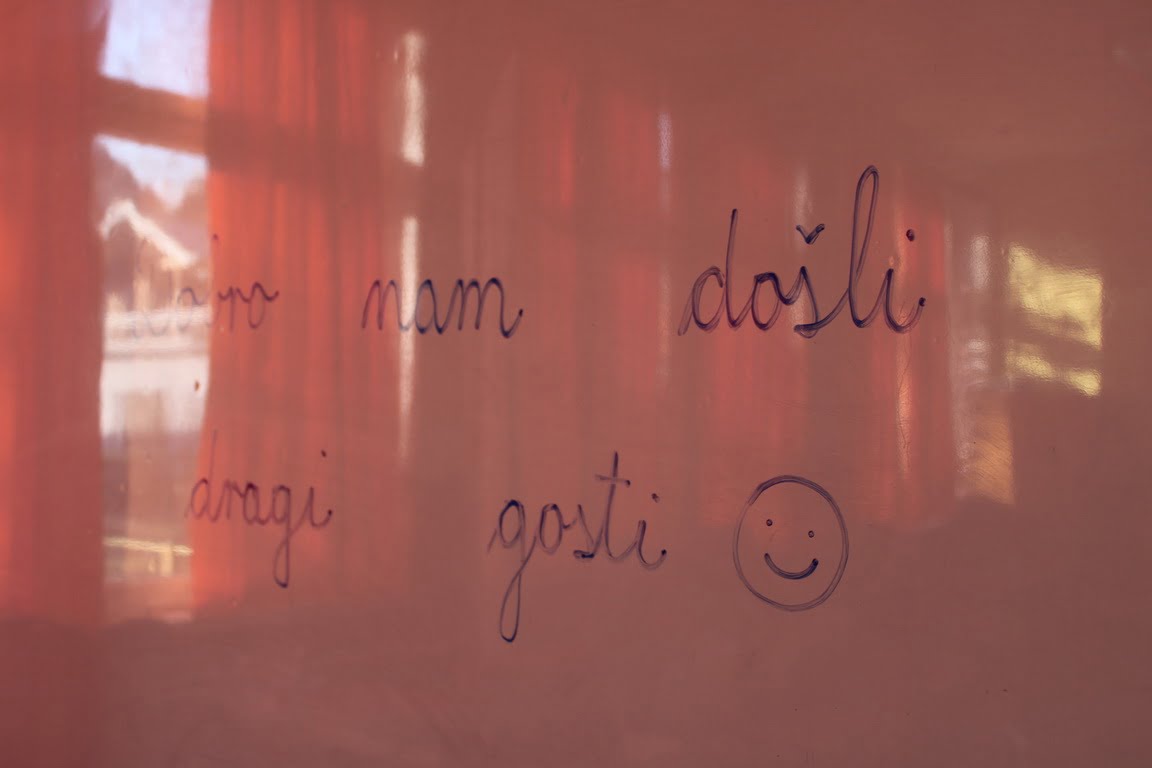 dobro nam došli
dragi gosti